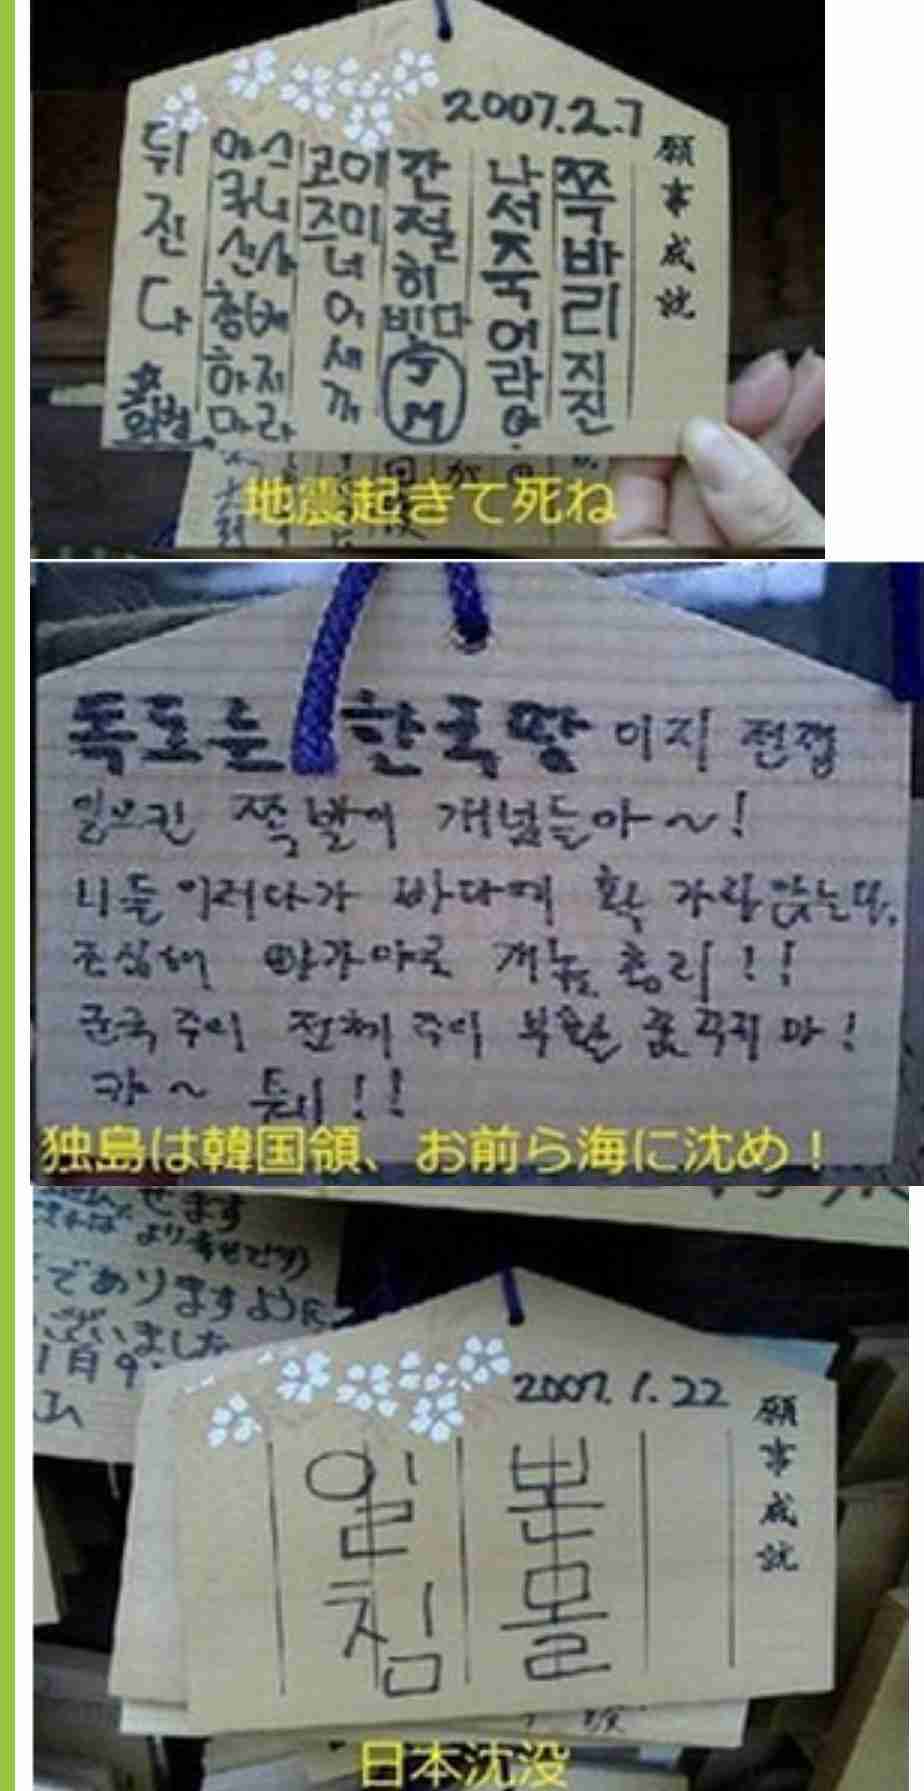 2007.2.7
願事成就
쪽바리 지진
나서 죽어라
간절히 빈다
코이즈미 너 이 세끼
야스쿠니 신사 참배 하지 마라
뒤진다
地震起きて死ね
독도는 한국땅 이지
쪽발이 개념들아~!
니들 이러다가 바다에 확 가라앉는다.
조심해 총리!!
군국주의 전체주의 부활 꿈꾸지 마!
캬~ 퉤!!
独島は韓国領、お前ら海に沈め！
せます
より幸せで
でありますように
ございました
1月9
2007.1.22
願事成就
일본
침몰
日本沈没